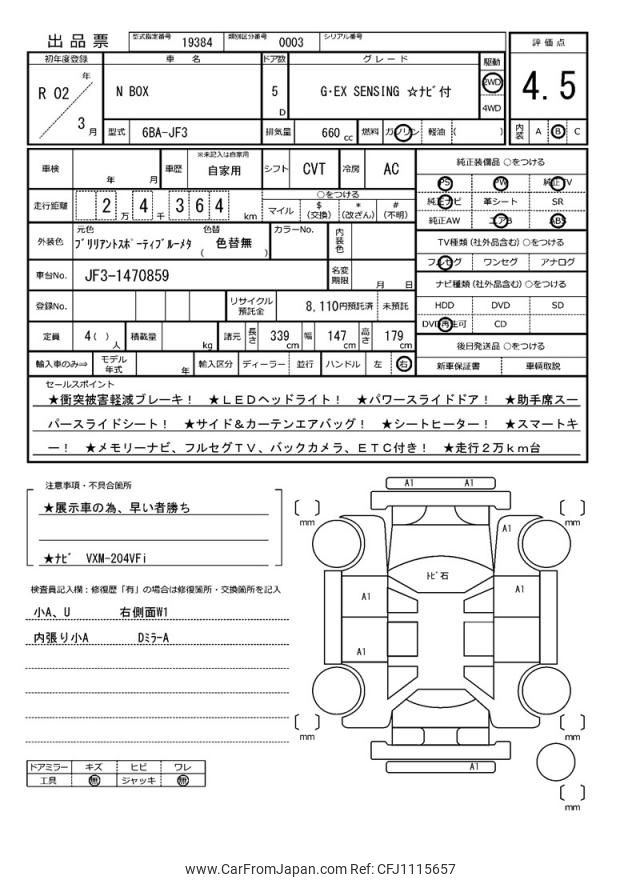 出品票 型式指定番号 19384 類別区分番号 0003 シリアル番号
評価点
4.5
内装 A B C
初年度登録 車名 ドア数 グレード 駆動
R 02 年 3 月
N BOX 5 D G・EX SENSING ☆ﾅﾋﾞ付 2WD 4WD
型式 6BA-JF3 排気量 660 cc 燃料 ガソリン 軽油 ( )
車検 年 月 車歴 ※未記入は自家用 自家用 シフト CVT 冷房 AC
走行距離 2 万 4 千 3 6 4 km
○をつける
マイル $(交換) *(改ざん) #(不明)
外装色 元色 ﾌﾞﾘﾘｱﾝﾄｽﾎﾟｰﾃｨﾌﾞﾙｰﾒﾀ 色替 ( 色替無 ) カラーNo. 内装色
車台No. JF3-1470859 名変期限 月 日
登録No. リサイクル預託金 8,110円預託済 未預託
定員 4( ) 人 積載量 kg 諸元 長さ 339 cm 幅 147 cm 高さ 179 cm
輸入車のみ⇨ モデル年式 年 輸入区分 ディーラー 並行 ハンドル 左 右
純正装備品 ○をつける
PS PW 純正TV
純正ナビ 革シート SR
純正AW エアB ABS
TV種類(社外品含む)○をつける
フルセグ ワンセグ アナログ
ナビ種類(社外品含む)○をつける
HDD DVD SD
DVD再生可 CD
後日発送品 ○をつける
新車保証書 車輌取説
セールスポイント
★衝突被害軽減ブレーキ！ ★ＬＥＤヘッドライト！ ★パワースライドドア！ ★助手席スー
パースライドシート！ ★サイド＆カーテンエアバッグ！ ★シートヒーター！ ★スマートキ
ー！ ★メモリーナビ、フルセグＴＶ、バックカメラ、ＥＴＣ付き！ ★走行２万ｋｍ台
注意事項・不具合箇所
★展示車の為、早い者勝ち
★ﾅﾋﾞ VXM-204VFi
検査員記入欄：修復歴「有」の場合は修復箇所・交換箇所を記入
小A、U 右側面W1
内張り小A DﾐﾗｰA
ドアミラー キズ ヒビ ワレ
工具 無 ジャッキ 無
A1 A1
mm
mm
A1
ﾄﾋﾞ石
A1 A1
A1
mm
mm
A1
mm
www.CarFromJapan.com Ref: CFJ1115657